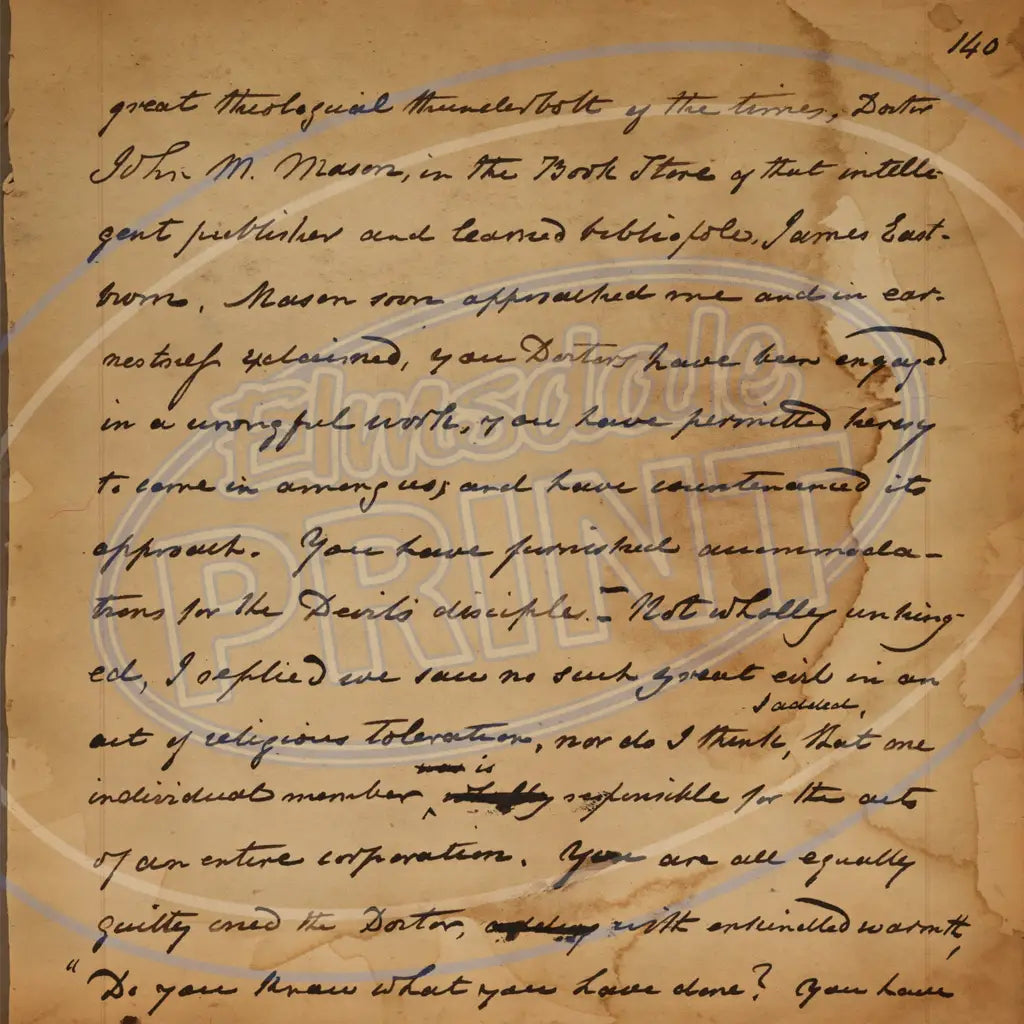 140
great theological thunderbolt of the times, Doctor
John M. Mason, in the Book Store of that intelli-
gent publisher and learned bibliopole, James East-
burn. Mason soon approached me and in ear-
nestness exclaimed, you Doctors have been engaged
in a wrongful work, you have permitted heresy
to come in among us, and have countenanced its
approach. You have furnished accommoda-
tions for the Devil's disciples. - Not wholly unhing-
ed, I replied we saw no such great evil in an
I added,
act of religious toleration, nor do I think, that one
was is
individual member wholly responsible for the acts
of an entire corporation. You are all equally
guilty cried the Doctor, with enkindled warmth,
"Do you know what you have done? You have
Elmsdale
PRINT